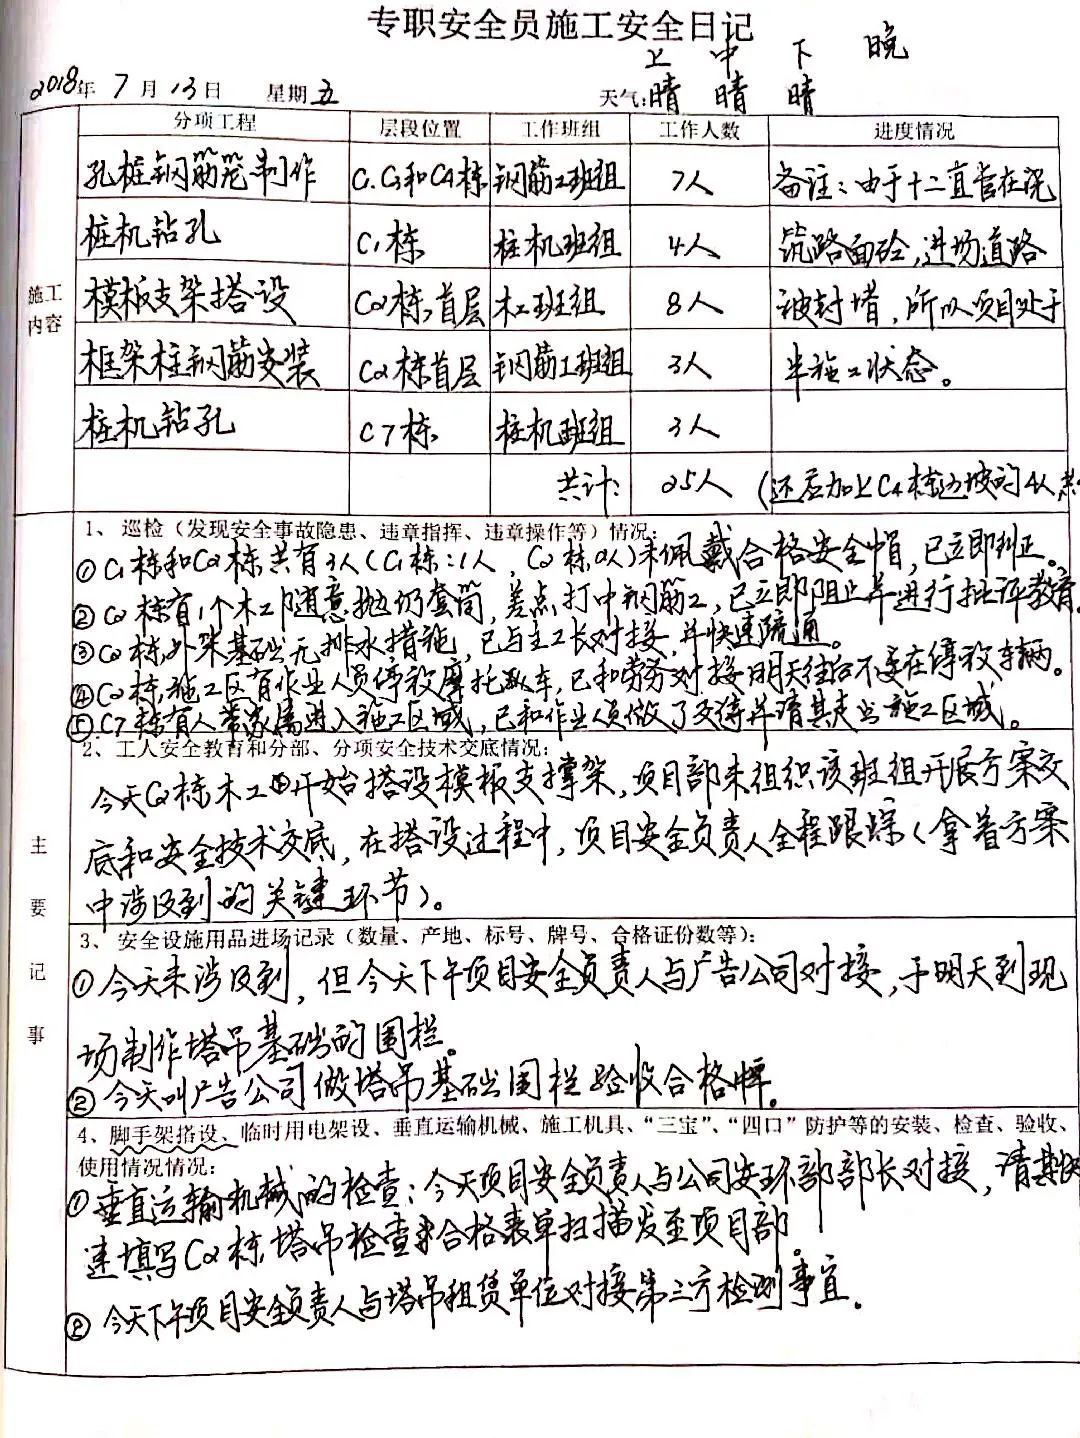 专职安全员施工安全日记
上 中 下 晚
2018年 7月 13日 星期五 天气:晴 晴 晴
分项工程 层段位置 工作班组 工作人数 进度情况
孔桩钢筋笼制作 C1.C3和C4栋 钢筋工班组 7人 备注：由于十二直管在浇
桩机钻孔 C1栋 桩机班组 4人 筑路面砼,进场道路
施工 模板支架搭设 C2栋,首层 木工班组 8人 被封堵,所以项目处于
内容
框架柱钢筋安装 C2栋首层 钢筋工班组 3人 半施工状态。
桩机钻孔 C7栋 桩机班组 3人
共计: 25人 (还应加上C4栋边坡的4人
1、巡检（发现安全事故隐患、违章指挥、违章操作等）情况:
①C1栋和C2栋共有3人(C1栋:1人,C2栋2人)未佩戴合格安全帽,已立即纠正。
②C2栋有1个木工随意抛扔套筒,差点打中钢筋工,已立即阻止并进行批评教育
③C2栋,外架基础无排水措施,已与主工长对接,并快速疏通。
④C2栋,施工区有作业人员停放摩托车,已和劳务对接明天往后不要在停放车辆。
⑤C7栋有人带家属进入施工区域,已和作业人员做了交待并请其走出施工区域。
2、工人安全教育和分部、分项安全技术交底情况:
今天C2栋木工开始搭设模板支撑架,项目部未组织该班组开展方案交
底和安全技术交底,在搭设过程中,项目安全负责人全程跟踪(拿着方案
中涉及到的关键环节)。
主要记事
3、安全设施用品进场记录（数量、产地、标号、牌号、合格证份数等）:
①今天未涉及到,但今天下午项目安全负责人与广告公司对接,于明天到现
场制作塔吊基础的围栏。
②今天叫广告公司做塔吊基础围栏验收合格牌。
4、脚手架搭设、临时用电架设、垂直运输机械、施工机具、“三宝”、“四口”防护等的安装、检查、验收、
使用情况情况:
①垂直运输机械的检查:今天项目安全负责人与公司安环部部长对接,请其快
速填写C2栋,塔吊检查合格表单扫描发至项目部。
②今天下午项目安全负责人与塔吊租赁单位对接第三方检测事宜。